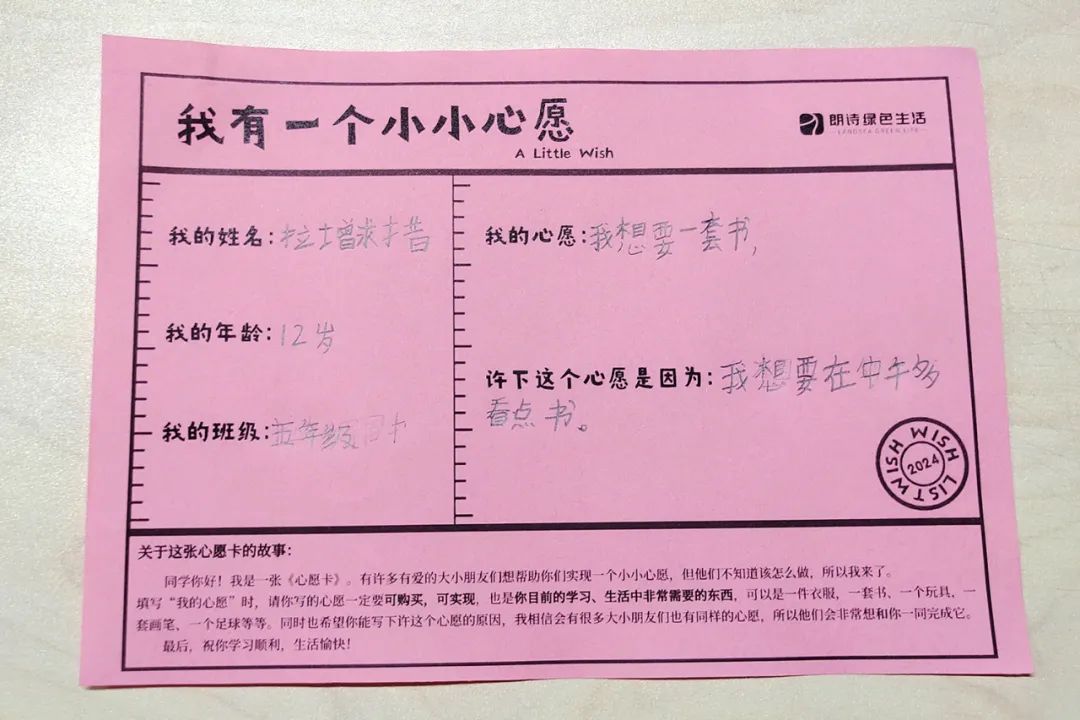 我有一个小小心愿
A Little Wish
朗诗绿色生活
LANDSEA GREEN LIFE
我的姓名:拉增求措
我的年龄:12岁
我的班级:五年级
我的心愿:我想要一套书,
许下这个心愿是因为:我想要在中午多
看点书。
WISH WISH LIST
2024
关于这张心愿卡的故事:
同学你好！我是一张《心愿卡》。有许多有爱的大小朋友们想帮助你们实现一个小小心愿，但他们不知道该怎么做，所以我来了。
填写“我的心愿”时，请你写的心愿一定要可购买，可实现，也是你目前的学习、生活中非常需要的东西，可以是一件衣服，一套书、一个玩具、一
套画笔、一个足球等等。同时也希望你能写下许这个心愿的原因，我相信会有很多大小朋友们也有同样的心愿，所以他们会非常想和你一同完成它。
最后，祝你学习顺利，生活愉快！